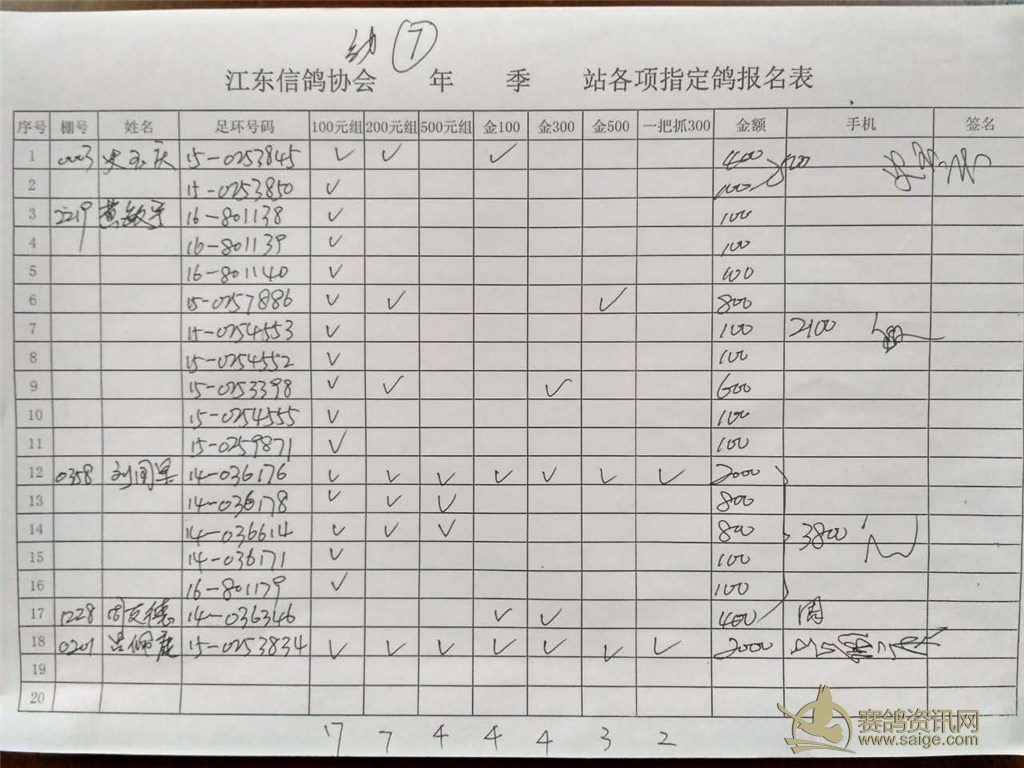 幼 ⑦
江东信鸽协会 年 季 站各项指定鸽报名表
序号 棚号 姓名 足环号码 100元组 200元组 500元组 金100 金300 金500 一把抓300 金额 手机 签名
1 0003 15-0253845 ✓ ✓ ✓ 400 500
2 15-0253850 ✓ 100
3 2219 黄敏子 16-801138 ✓ 100
4 16-801139 ✓ 100
5 16-801140 ✓ 100
6 15-0257886 ✓ ✓ ✓ 800
7 15-0254553 ✓ 100 2100
8 15-0254552 ✓ 100
9 15-0253398 ✓ ✓ ✓ 600
10 15-0254555 ✓ 100
11 15-0259871 ✓ 100
12 0358 14-036176 ✓ ✓ ✓ ✓ ✓ ✓ ✓ 2000
13 14-036178 ✓ ✓ ✓ 800
14 14-036614 ✓ ✓ ✓ 800 3800
15 14-036171 ✓ 100
16 16-801179 ✓ 100
17 1228 周友德 14-036346 ✓ ✓ 400 周
18 0201 15-0253834 ✓ ✓ ✓ ✓ ✓ ✓ ✓ 2000
19
20
17 7 4 4 4 3 2
赛鸽资讯网
www.saige.com